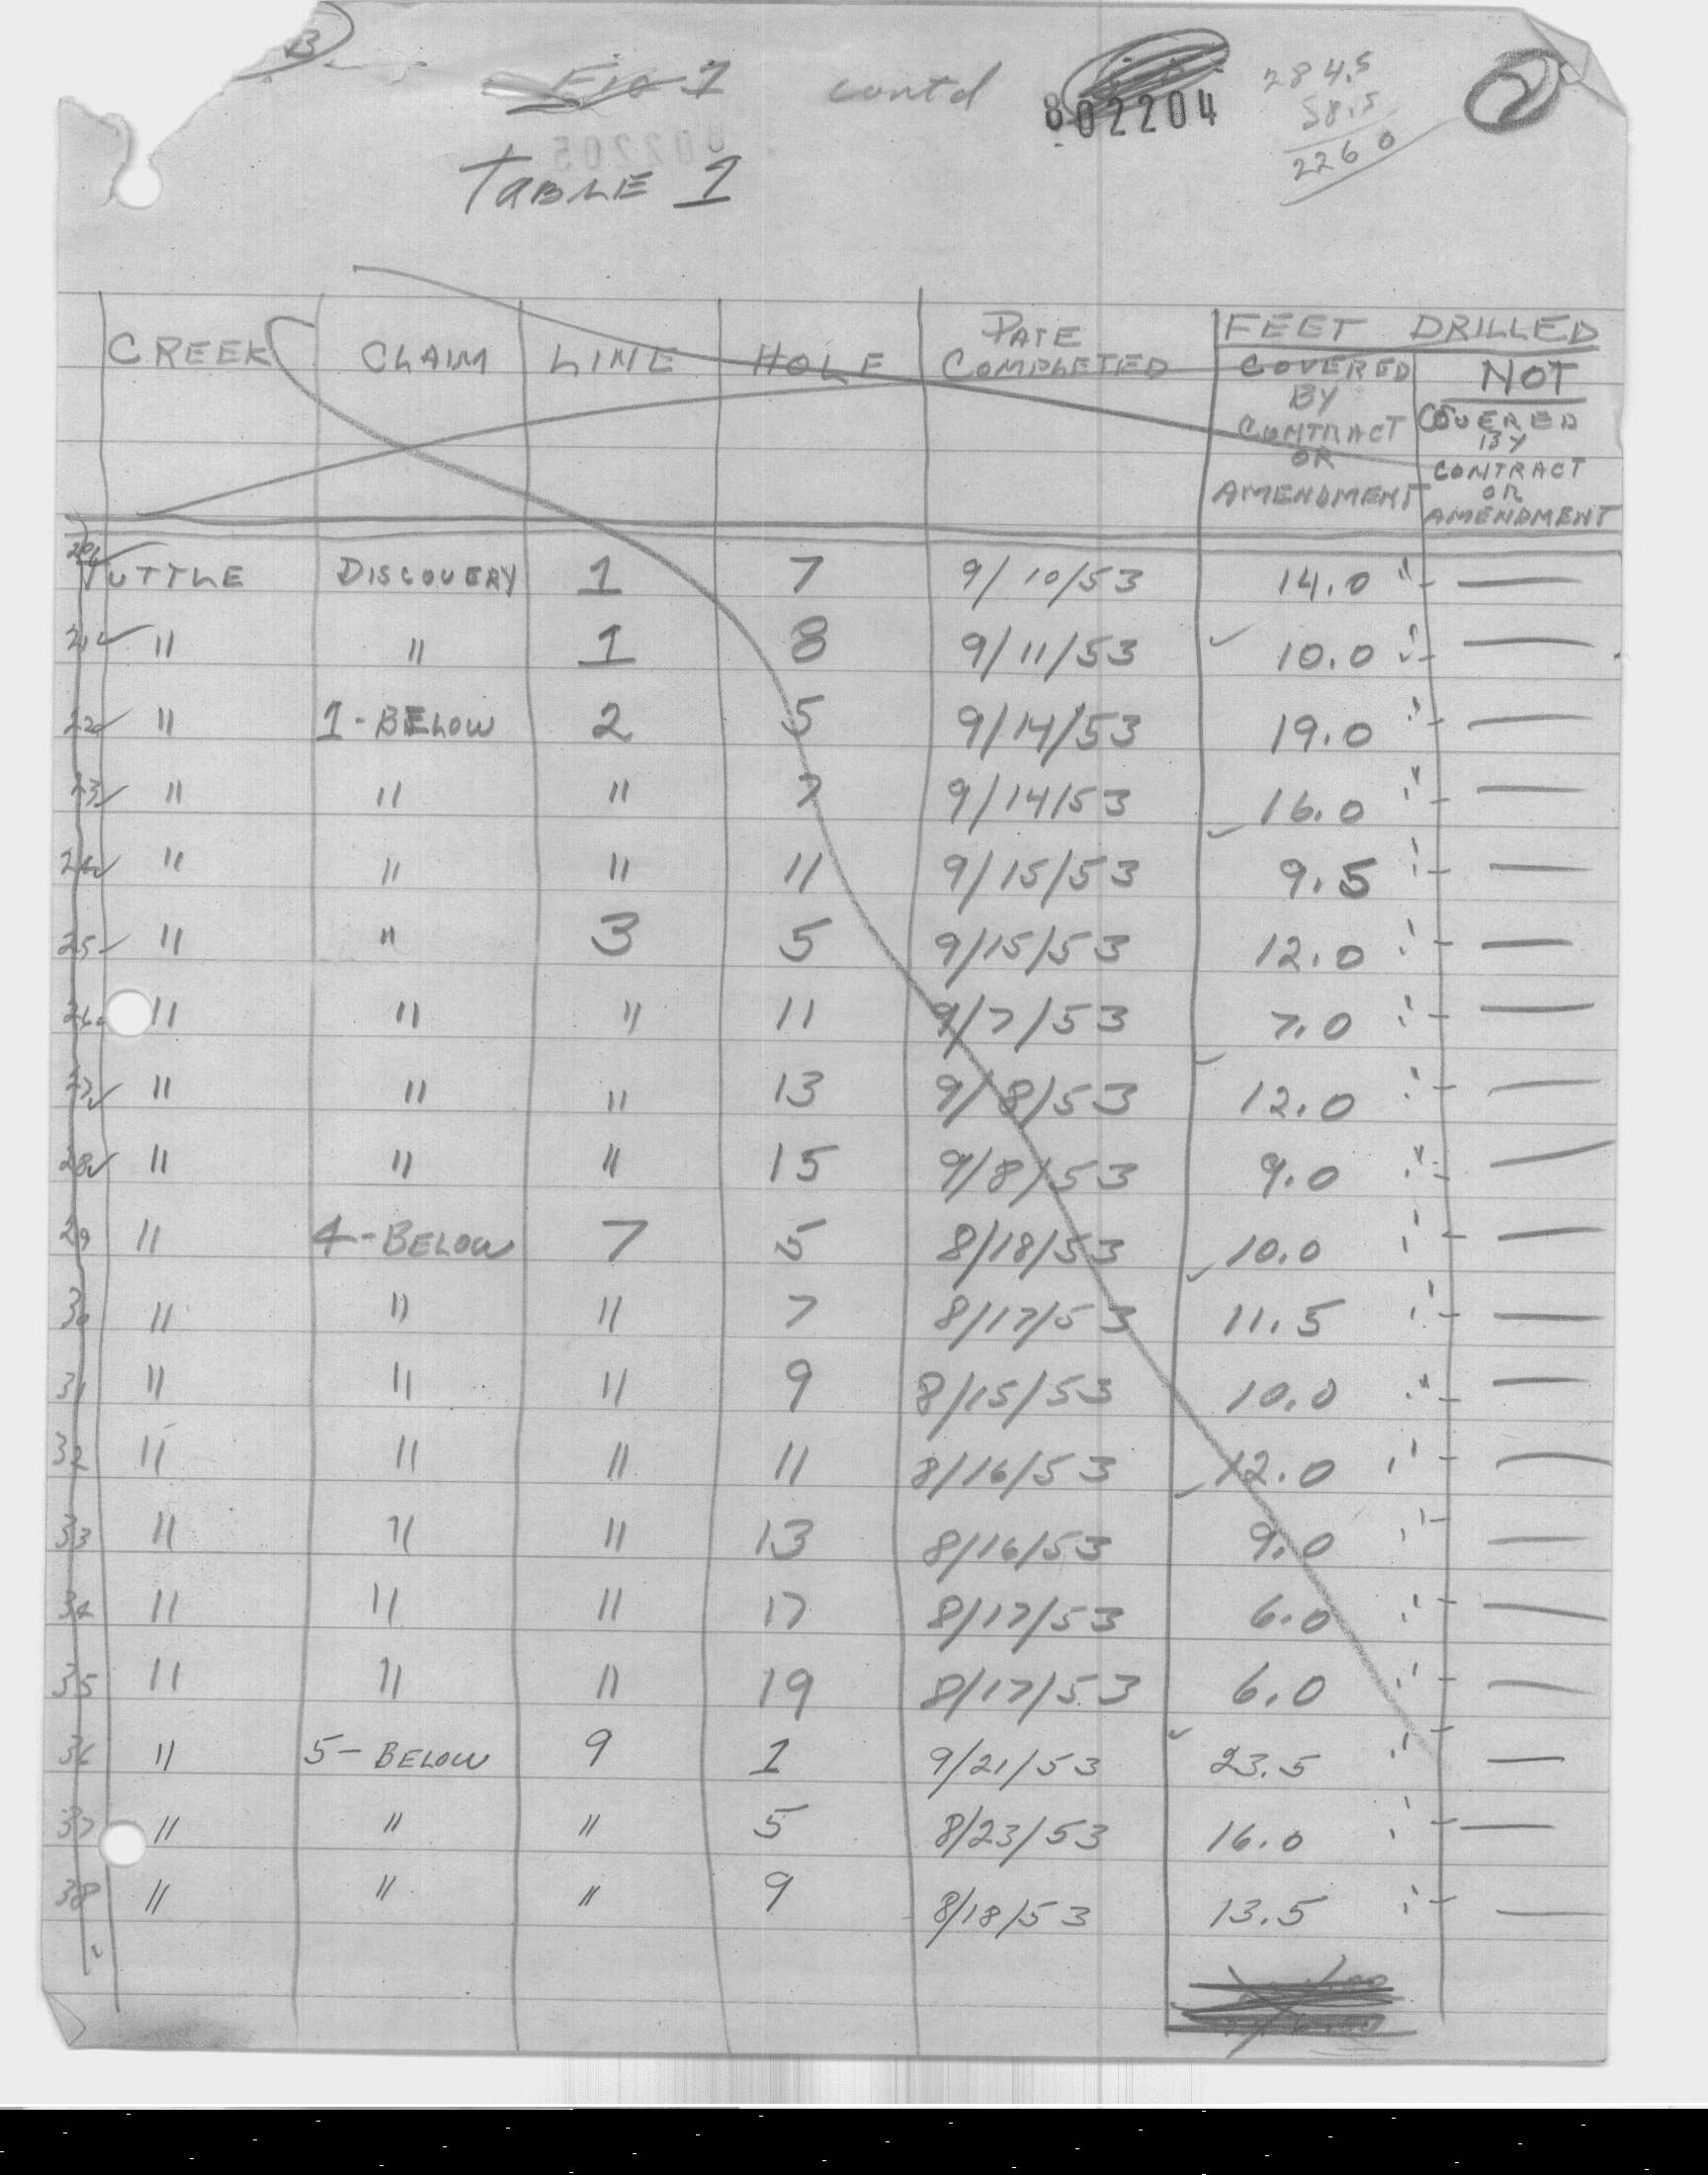 B
Fig 1 contd 802204 284.5
58.5
2260
2
802205
TABLE 1
FEET DRILLED
CREEK CLAIM LINE HOLE DATE COMPLETED COVERED BY CONTRACT OR AMENDMENT NOT COVERED BY CONTRACT OR AMENDMENT
20 TUTTLE DISCOVERY 1 7 9/10/53 14.0 " —
21 " " 1 8 9/11/53 10.0 —
22 " 1-BELOW 2 5 9/14/53 19.0 —
23 " " " 7 9/14/53 16.0 —
24 " " " 11 9/15/53 9.5 —
25 " " 3 5 9/15/53 12.0 —
26 " " " 11 9/7/53 7.0 —
27 " " " 13 9/8/53 12.0 —
28 " " " 15 9/8/53 9.0 —
29 " 4-BELOW 7 5 8/18/53 10.0 —
30 " " " 7 8/17/53 11.5 —
31 " " " 9 8/15/53 10.0 —
32 " " " 11 8/16/53 12.0 —
33 " " " 13 8/16/53 9.0 —
34 " " " 17 8/17/53 6.0 —
35 " " " 19 8/17/53 6.0 —
36 " 5-BELOW 9 1 9/21/53 23.5 —
37 " " " 5 8/23/53 16.0 —
38 " " " 9 8/18/53 13.5 —